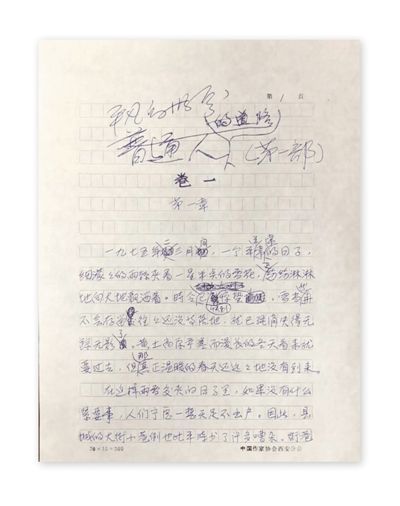 第 1 页
平凡的世界
的道路
普通人
(第一部)
卷一
第一章
一九七五年二三月间，一个平平常常的日子，
细濛濛的雨丝夹着一星半点的雪花，正纷纷淋淋
地向大地飘洒着。时令已快到惊蛰，雪当然再
不会存留，往往还没等落地，就已经消失得无
踪无影了。黄土高原严寒而漫长的冬天看来就
要过去，但那真正温暖的春天还远远地没有到来。
在这样雨雪交加的日子里，如果没有什么
紧要事，人们宁愿一整天足不出户。因此，县
城的大街小巷倒也比平时少了许多嘈杂。街巷
20×15=300
中国作家协会西安分会